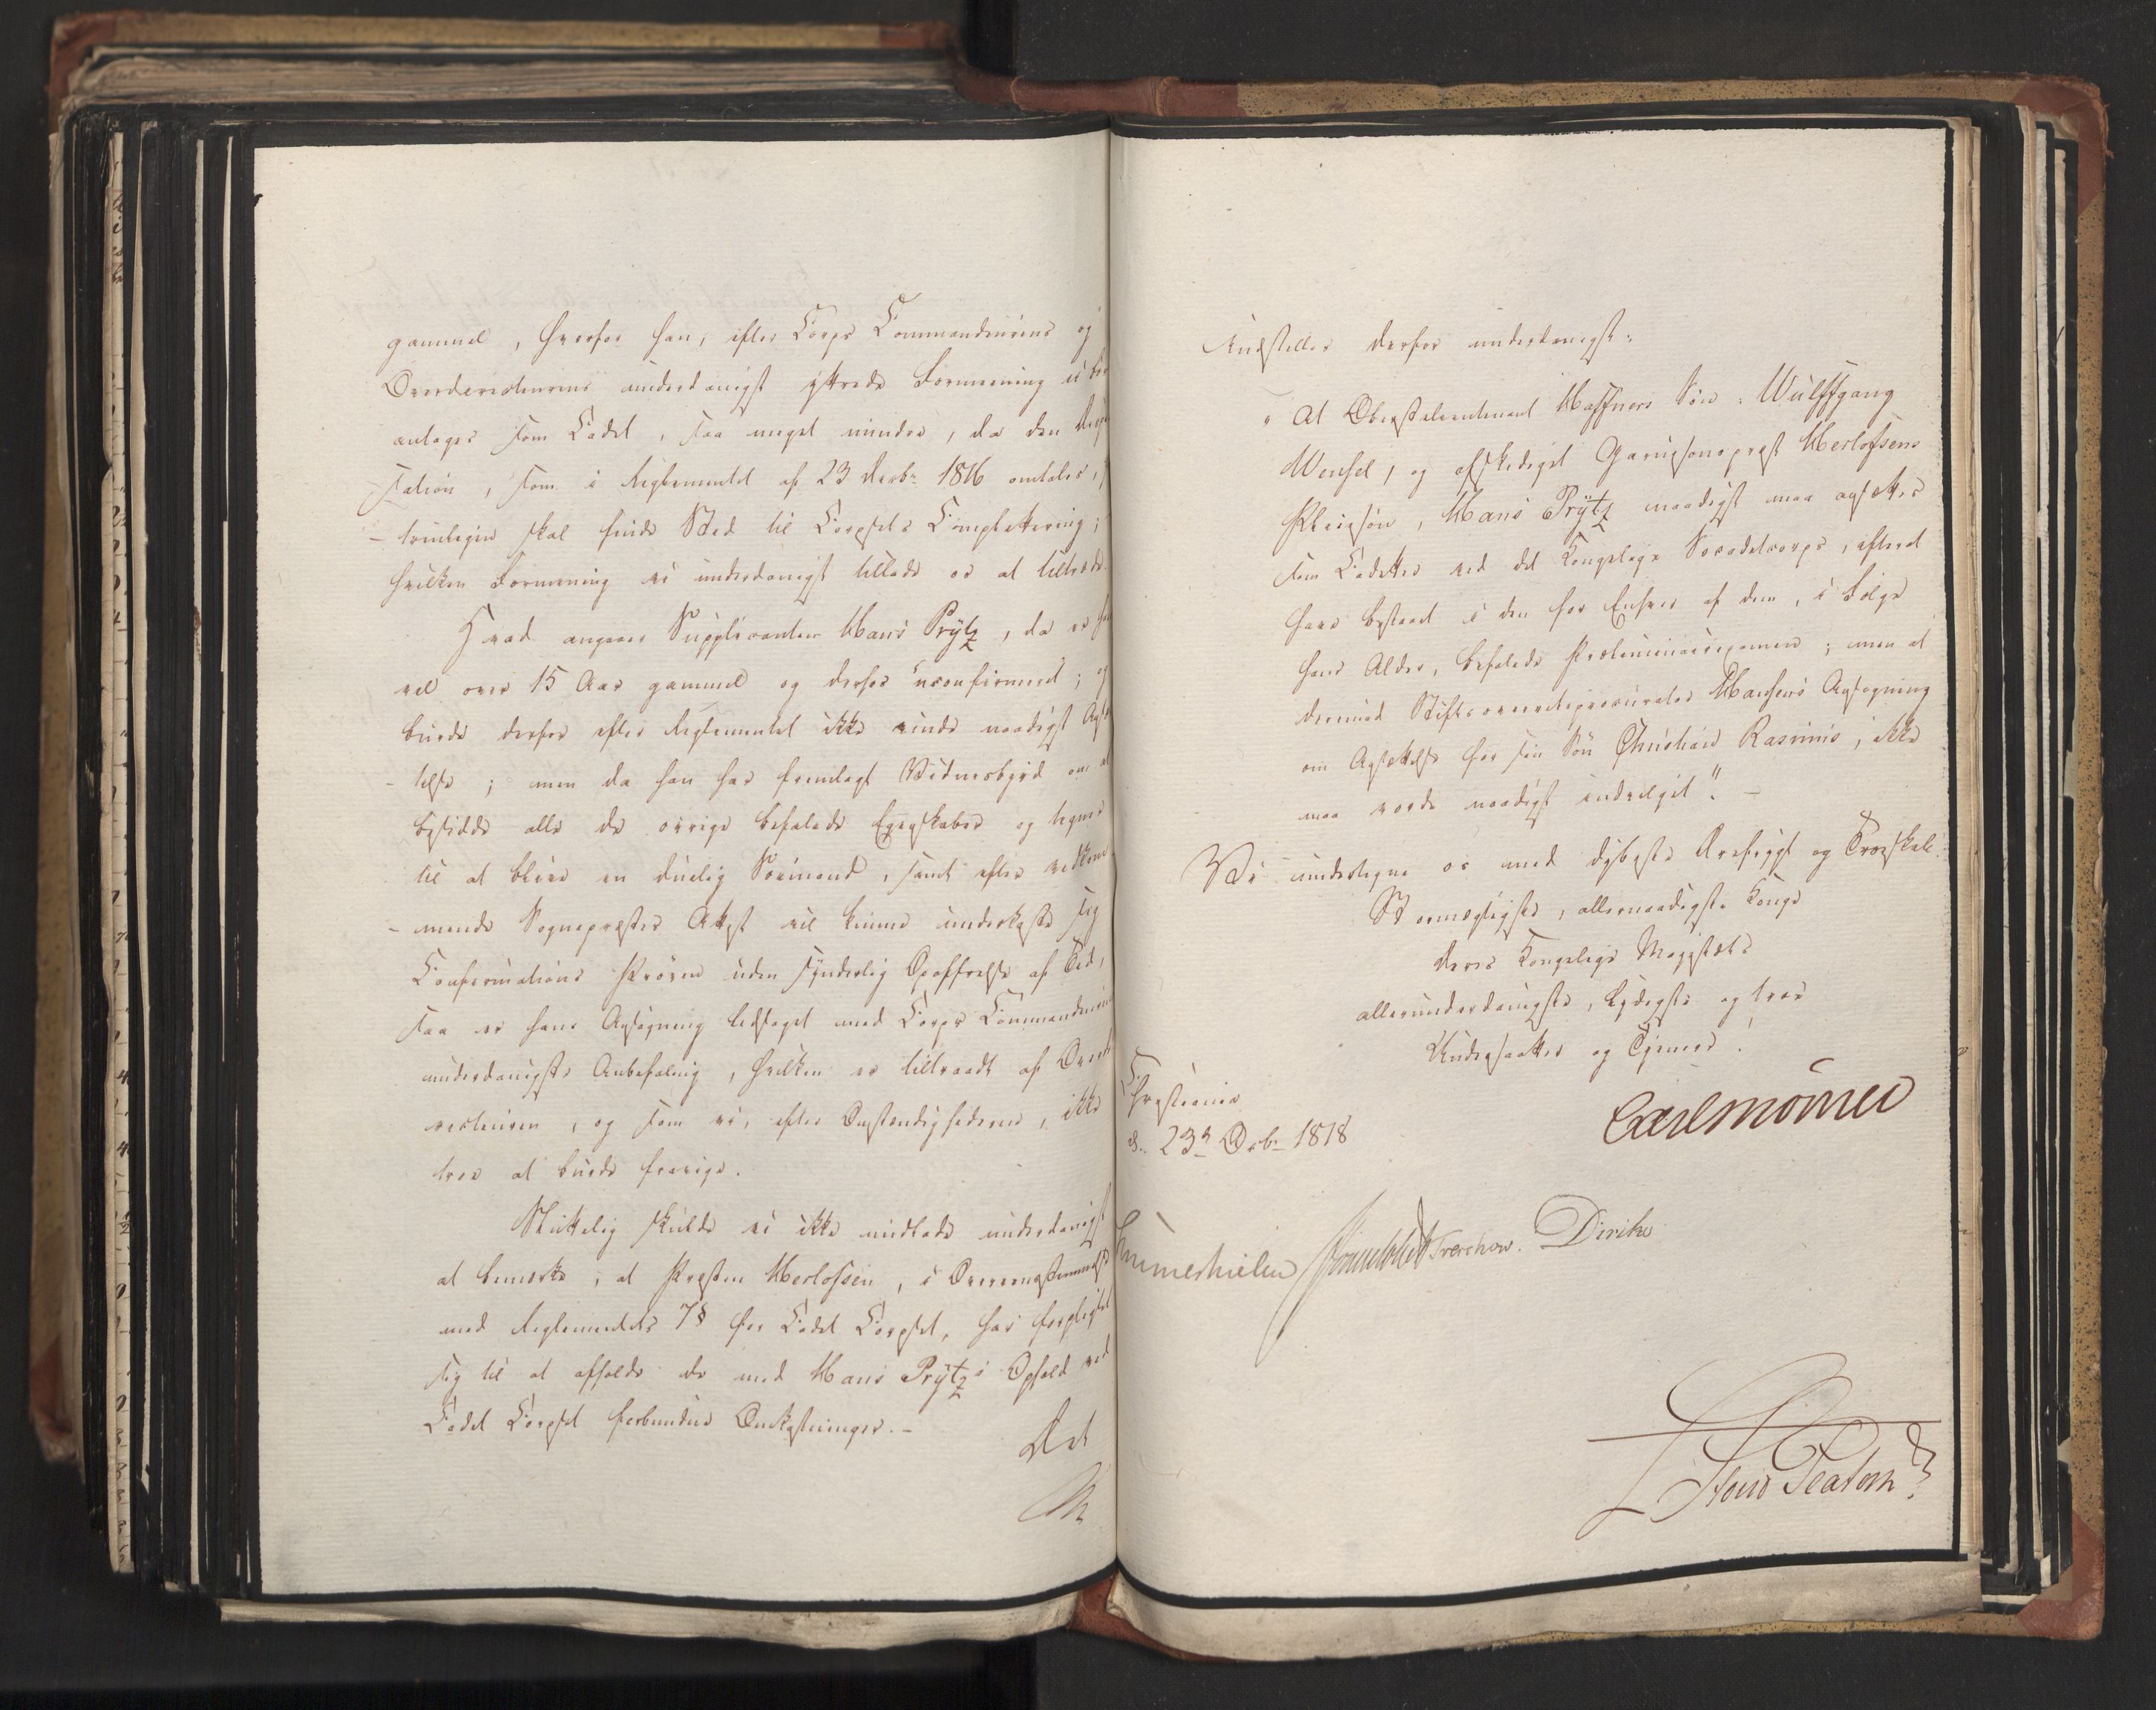 gammel, hvorfor han, efter Corps Commandeurens og
Overdirecteurens underdanigst yttrede Formeening ei bør
antages som Cadet, saa meget mindre, da den
-sation, som i Reglementet af 23 Decbr 1816 omtales,
-trinligen skal finde Sted til Corpsets Complettering;
hvilken Formening vi underdanigst tillade os at tiltræde.
Hvad angaaer Supplicanten Hans Prÿtz, da er han
vel over 15 Aar gammel og derfor uconfirmeret; og
burde derfor efter Reglementet ikke vinde naadigst Ansæt
-telse; men da han har fremlagt Vidnesbyrd om at
besidde alle de øvrige befalede Egenskaber og tegner
til at blive en duelig Sömand, samt efter vedkom
-mende Sognepræstes Attest vil kunne underkaste sig
Confirmations Pröven uden synderlig Opoffrelse af Tid,
saa er hans Ansögning ledsaget med Corps Commandeurens
underdanigste Anbefaling, hvilken er tiltraadt af Overdi
recteuren, og som vi, efter Omstændighederne, ikke
troe at burde fravige.
Sluttelig skulde vi ikke undlade underdanigst
at bemærke, at Præsten Herlofsen, i Overeensstemmelse
med Reglementets 7§ for Cadet Corpset, har forpligtet
sig til at afholde de med Hans Prÿtz's Ophold ved
Cadet Corpset forbundne Omkostninger.-
Det
Indstilles derfor underdanigst:
"At Oberstlieutenant Haffners Sön: Wulffgang
Wenzel, og afskediget Garnisonspræst Herlofsens
Pleiesön, Hans Prÿtz naadigst maa ansættes
som Cadetter ved det Kongelige Söcadetcorps, efterat
have bestaaet i den for Enhver af dem, i Fölge
hans Alder, befalede Præliminairexamen; men at
derimod Stiftsoverretsprocurator Hansens Ansögning
om Ansættelse for sin Sön Christian Rasmus, ikke
maa vorde naadigst indvilget". -
Vi undertegne os med dybeste Ærefrygt og Troeskab.
Stormægtigste, allernaadigste Konge
Deres Kongelige Majestæts
allerunderdanigste, lydigste og troe
Undersaatter og Tjenere!
Christiania
d. 23de Decbr 1818
Carl Mörner
Sommerhielm Treschow. Diriks